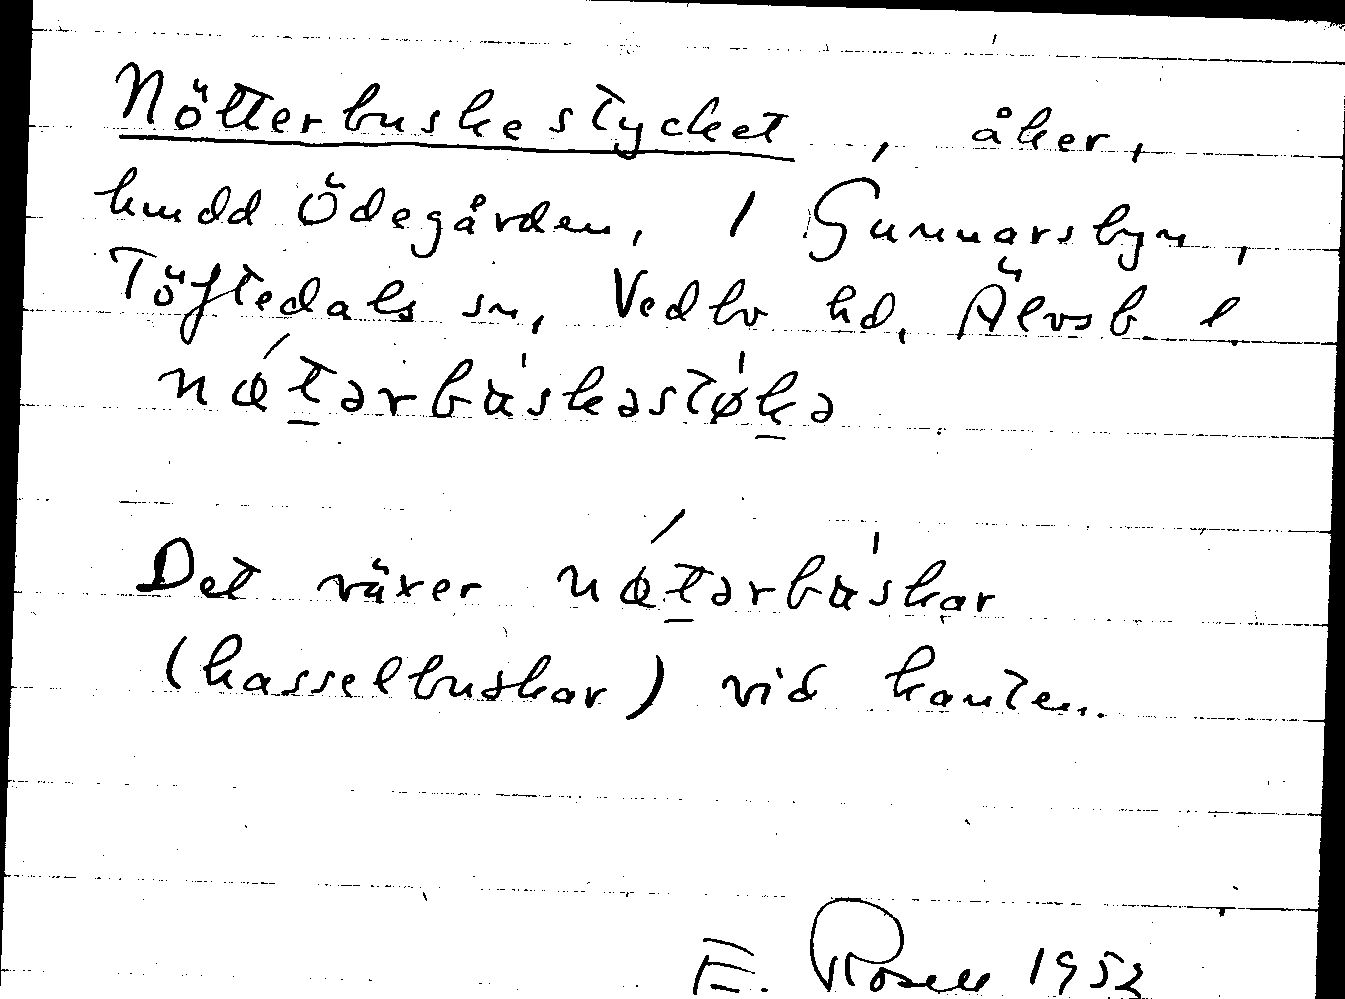 Nötterbuskestycket, åker,
hmdd Ödegården, 1 Gunnarsbyn,
Töftedals sn, Vedbo hd, Älvsb l.
nǿt̲ərbu̇skəstøk̲ə
Det växer nǿt̲ərbu̇skar
(hasselbuskar) vid kanten.
E. Rosell 1952